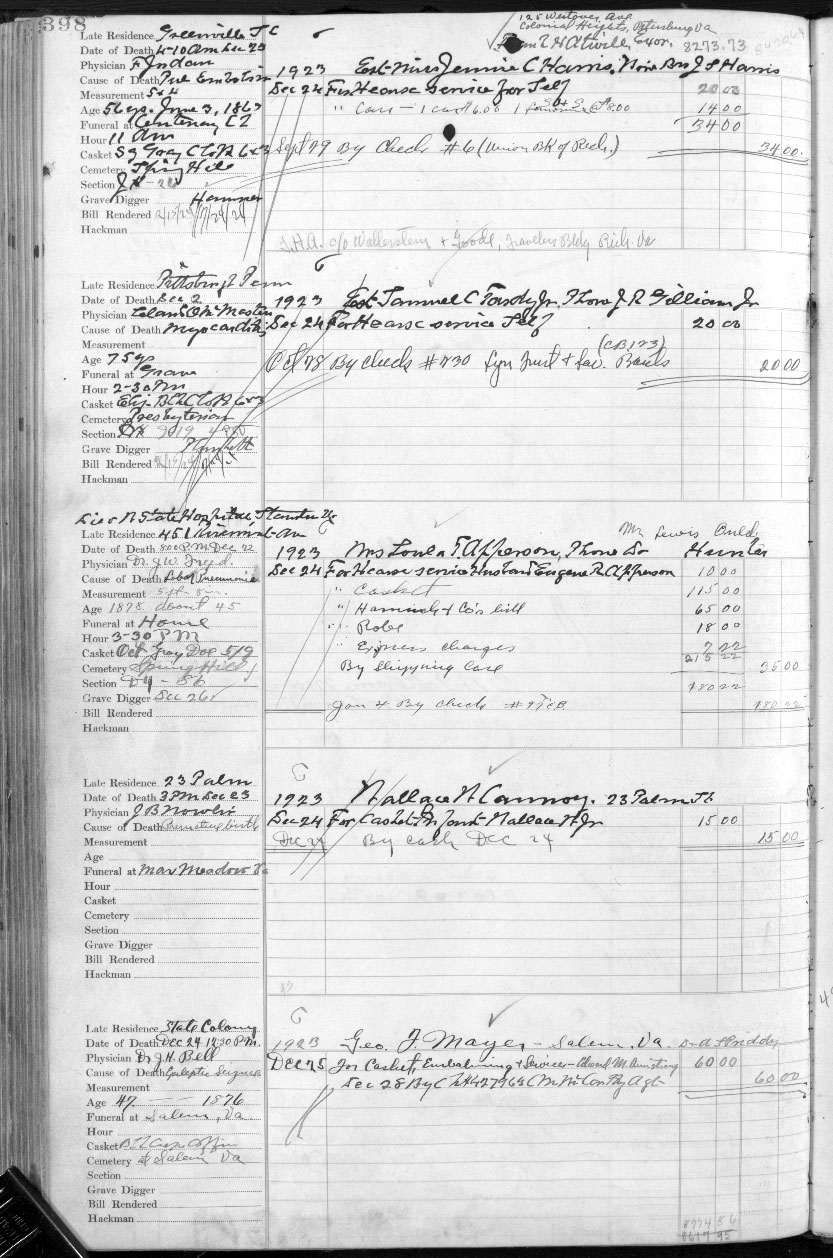 398
125 Westover Ave
Colonial Heights, Petersburg Va
Exor. 8273.73
Late Residence Greenville S C
Date of Death 4-10 Am Dec 23
Physician Jordan
Cause of Death Embolism
Measurement 5x4
Age 56 June 3, 1867
Funeral at Centenary Ch
Hour 11 Am
Casket Sq Gray Cloth 6x3
Cemetery Spring Hill
Section
Grave Digger Hamner
Bill Rendered
Hackman
1923 Est Mrs Jennie C Harris, J S Harris
Dec 24 For Hearse service for Self 20 00
" Cars - 1 car 6.00 8.00 14 00
34 00
Sept 29 By Check #6 (Union Bk of Rich.) 34 00
c/o Wallerstein & Goode, Travelers Bldg Rich. Va
Late Residence Pittsburg Penn
Date of Death Dec 2
Physician
Cause of Death Myocarditis
Measurement
Age 75 yrs
Funeral at Grave
Hour 2-30 Pm
Casket
Cemetery Presbyterian
Section
Grave Digger
Bill Rendered
Hackman
1923 Est Samuel C Tardy Jr, J R Gilliam Jr
Dec 24 For Hearse service Self 20 00
(CB 123)
Oct 28 By Check #730 Lyn Trust & Sav. Bank 20 00
Died at State Hospital Staunton Va
Late Residence 451 Rivermont Ave
Date of Death 8 00 P.M. Dec 22
Physician Dr. J. W.
Cause of Death Lobar Pneumonia
Measurement
Age 1878 about 45
Funeral at Home
Hour 3-30 PM
Casket Oct Gray Doe 5/9
Cemetery Spring Hill
Section
Grave Digger Dec 26
Bill Rendered
Hackman
Mr Lewis
1923 Mrs Loula T. Apperson, Hunter
Dec 24 For Hearse service Husband Eugene R. Apperson 10 00
" Casket 115 00
" Hamner & Co's bill 65 00
" Robe 18 00
" Express charges 7 22
215 22
By Shipping Case 35 00
180 22
Jan 4 By Check 180 22
Late Residence 23 Palm
Date of Death 3 PM Dec 23
Physician J B Nowlin
Cause of Death Premature birth
Measurement
Age
Funeral at Max Meadows Va
Hour
Casket
Cemetery
Section
Grave Digger
Bill Rendered
Hackman
1923 Wallace A Cannoy. 23 Palm St.
Dec 24 For Casket Infant Wallace A Jr 15 00
Dec 24 By cash Dec 24 15 00
Late Residence State Colony
Date of Death Dec 24 12:30 P.M.
Physician Dr J. H. Bell
Cause of Death Epileptic
Measurement
Age 47 1876
Funeral at Salem, Va
Hour
Casket
Cemetery Salem Va
Section
Grave Digger
Bill Rendered
Hackman
1923 Geo. J. Mayer - Salem, Va
Dec 25 For Casket, Embalming & Services - Armstrong 60 00
Dec 28 By Ck 60 00
8774 56